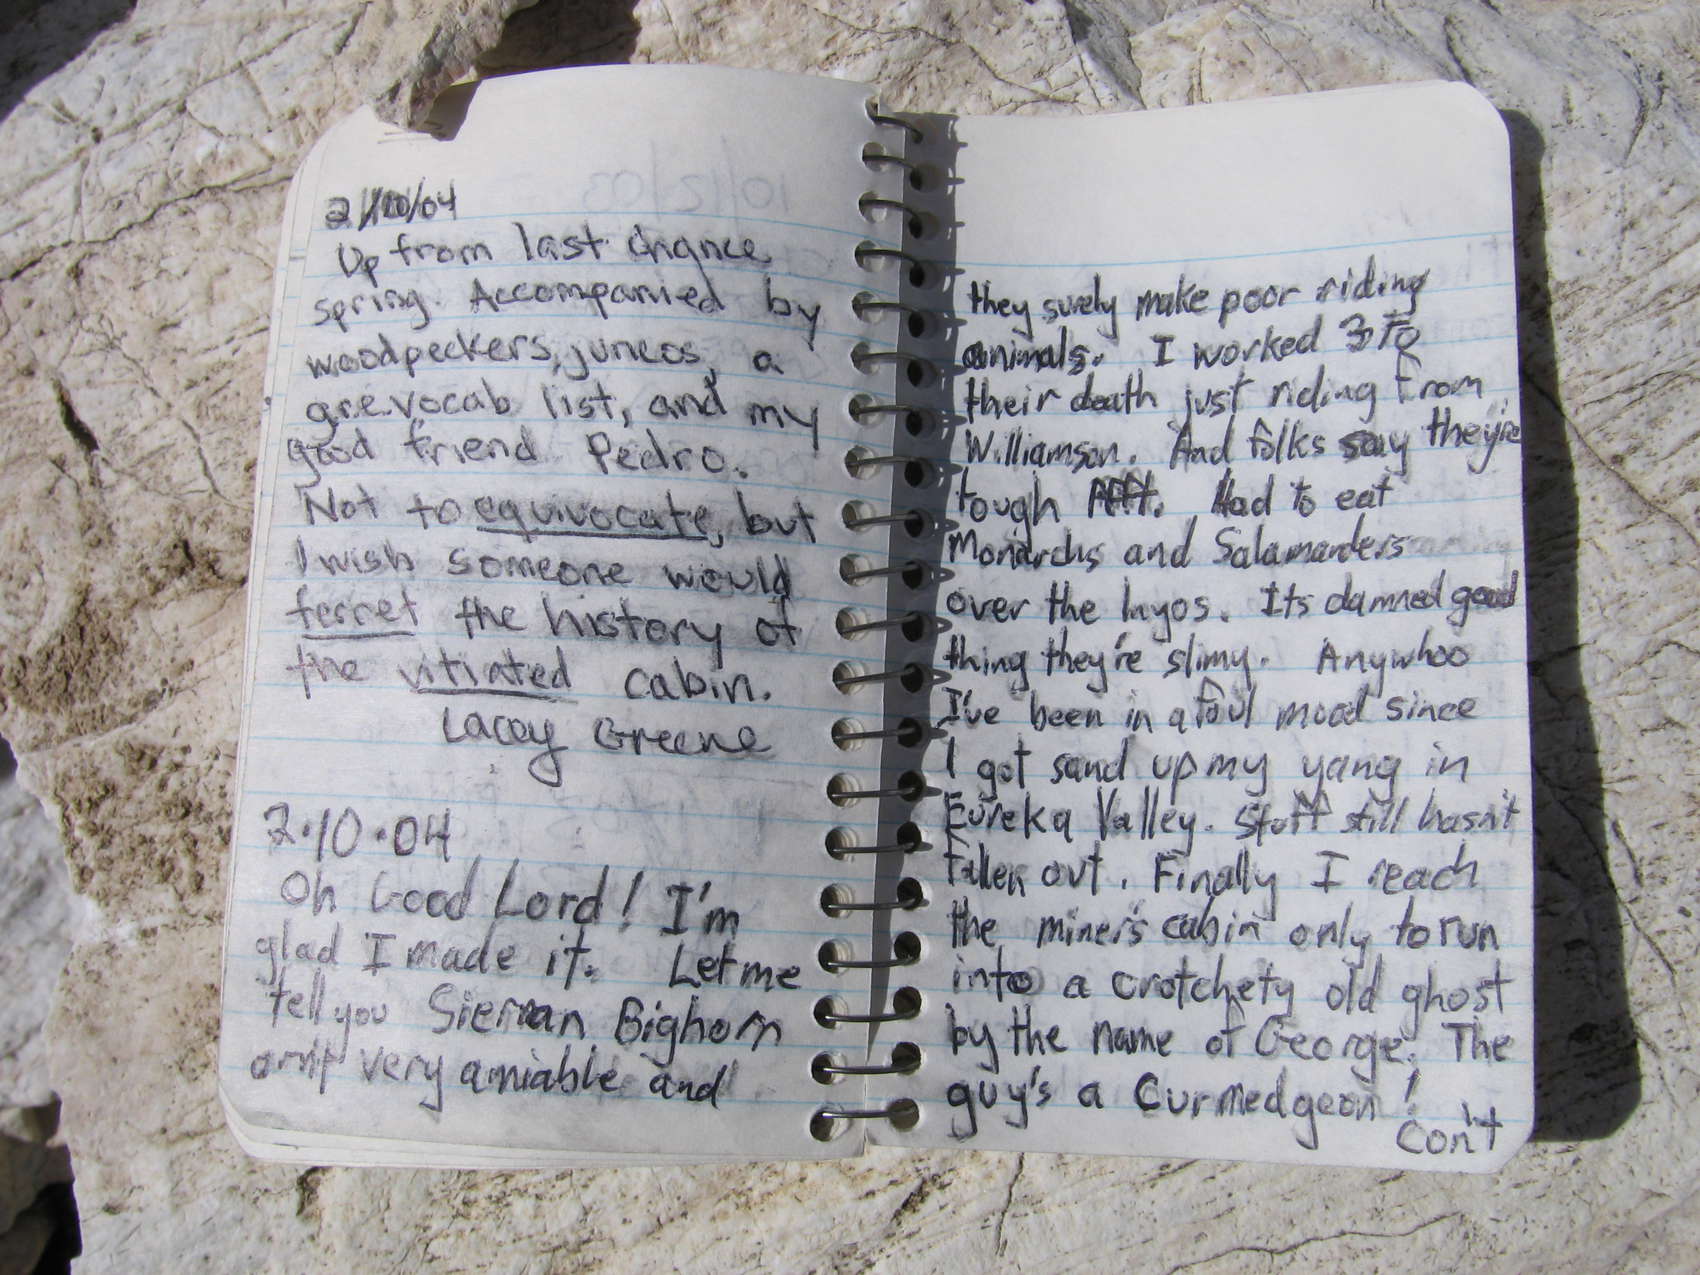 2/10/04
Up from last chance
spring. Accompanied by
woodpeckers, juncos, a
g.r.e. vocab list, and my
good friend Pedro.
Not to equivocate, but
I wish someone would
ferret the history of
the vitiated cabin.
Lacey Greene
2.10.04
Oh Good Lord! I'm
glad I made it. Let me
tell you Sierran Bighorn
very amiable and
they surely make poor riding
animals. I worked 3 to
their death just riding from
Williamson. And folks say they're
tough. Had to eat
Monarchs and Salamanders
over the Inyos. Its damned good
thing they're slimy. Anywhoo
I've been in a foul mood since
I got sand up my yang in
Eureka Valley. Stuff still hasn't
fallen out. Finally I reach
the miner's cabin only to run
into a crotchety old ghost
by the name of George. The
guy's a Curmedgeon!
Con't